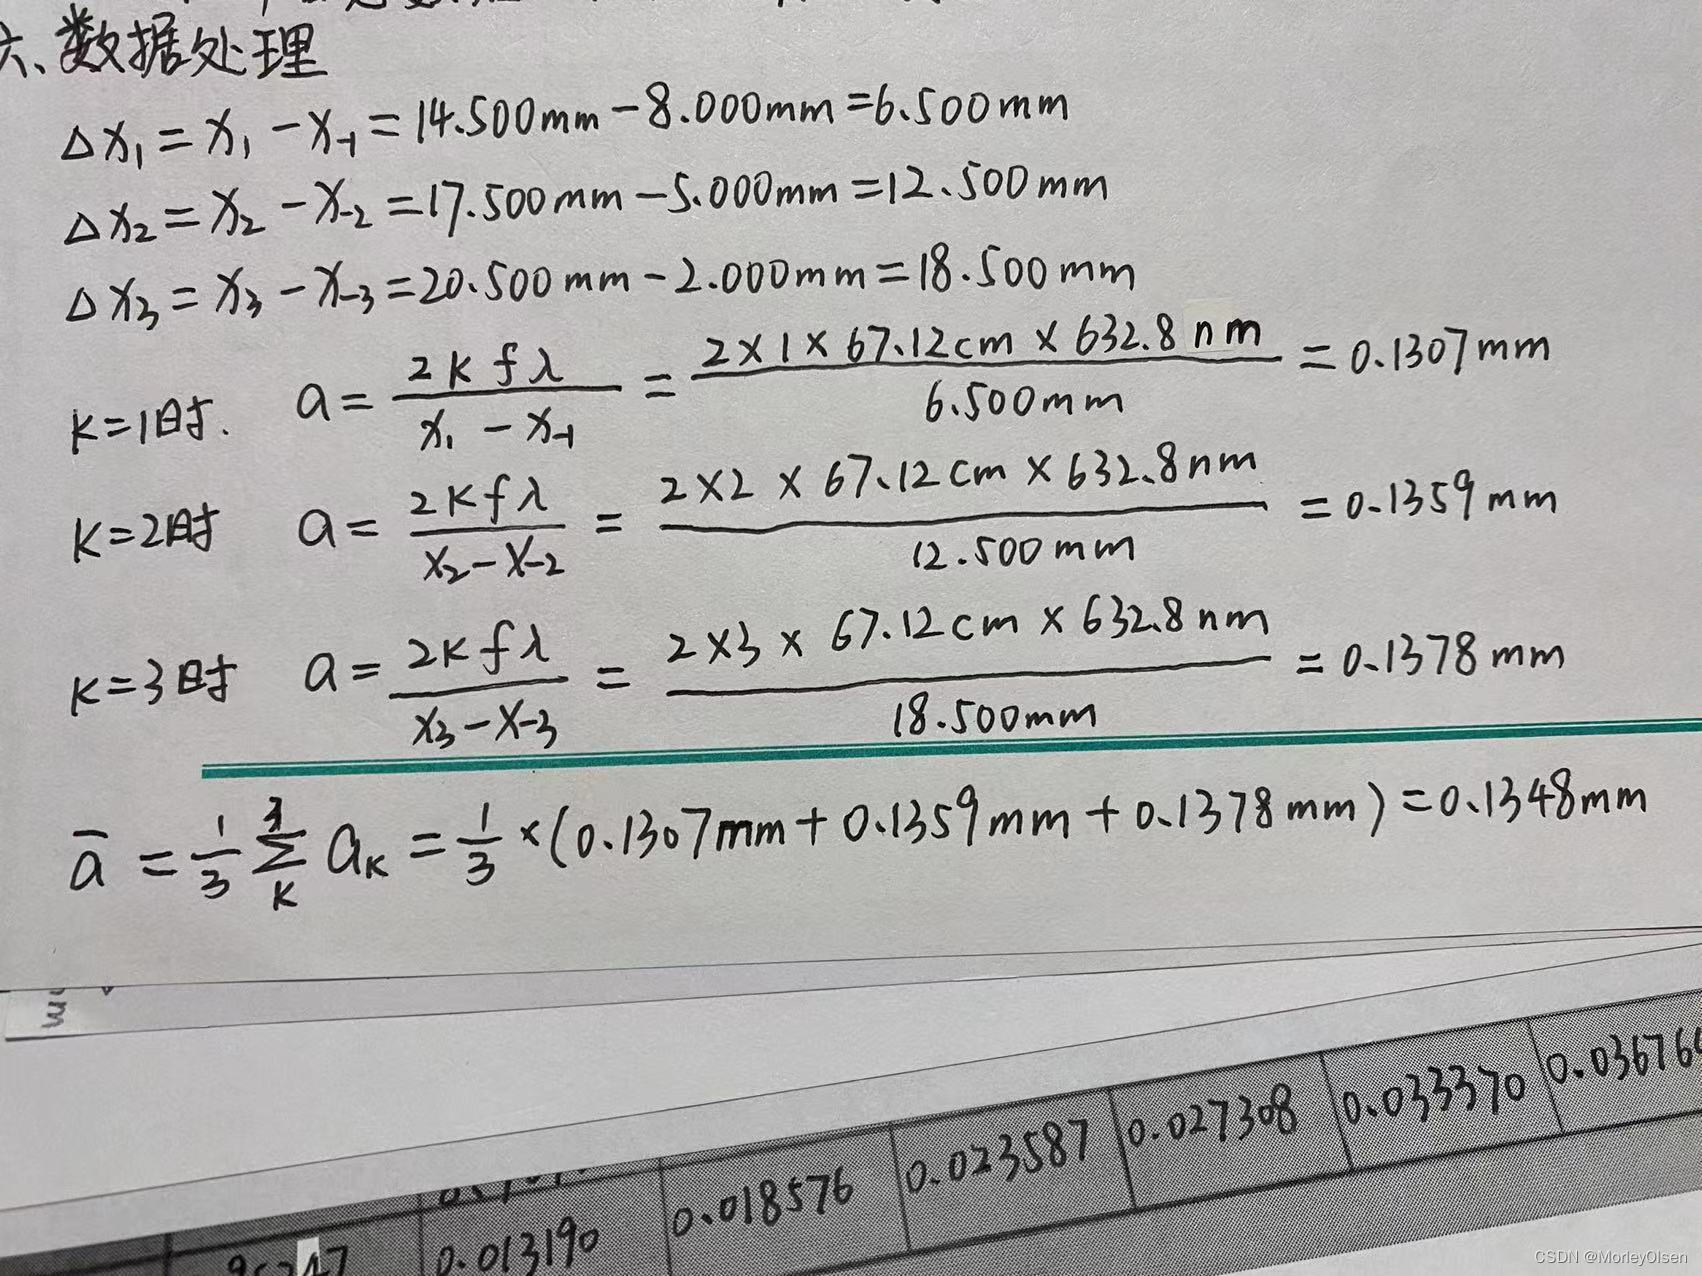 六、数据处理
Δx₁ = x₁ - x₋₁ = 14.500mm - 8.000mm = 6.500mm
Δx₂ = x₂ - x₋₂ = 17.500mm - 5.000mm = 12.500mm
Δx₃ = x₃ - x₋₃ = 20.500mm - 2.000mm = 18.500mm
k=1时. a = 2kfλ / (x₁ - x₋₁) = 2×1×67.12cm×632.8nm / 6.500mm = 0.1307mm
k=2时 a = 2kfλ / (x₂ - x₋₂) = 2×2×67.12cm×632.8nm / 12.500mm = 0.1359mm
k=3时 a = 2kfλ / (x₃ - x₋₃) = 2×3×67.12cm×632.8nm / 18.500mm = 0.1378mm
ā = 1/3 Σ aₖ = 1/3 ×(0.1307mm + 0.1359mm + 0.1378mm) = 0.1348mm
0.013190 0.018576 0.023587 0.027308 0.033370 0.03676
CSDN @MorleyOlsen